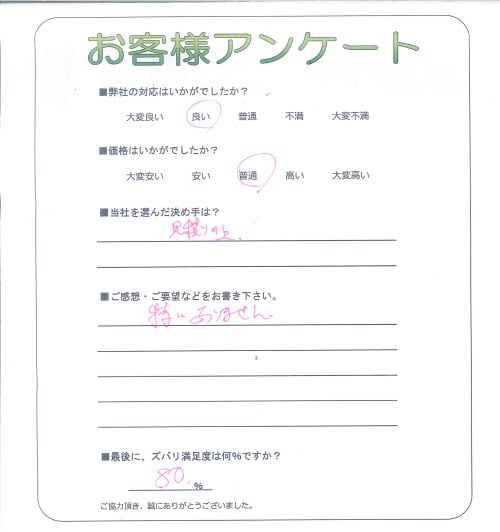 お客様アンケート
■弊社の対応はいかがでしたか？
大変良い 良い 普通 不満 大変不満
■価格はいかがでしたか？
大変安い 安い 普通 高い 大変高い
■当社を選んだ決め手は？
見積りの上、
■ご感想・ご要望などをお書き下さい。
特にありません
■最後に、ズバリ満足度は何％ですか？
80. %
ご協力頂き、誠にありがとうございました。